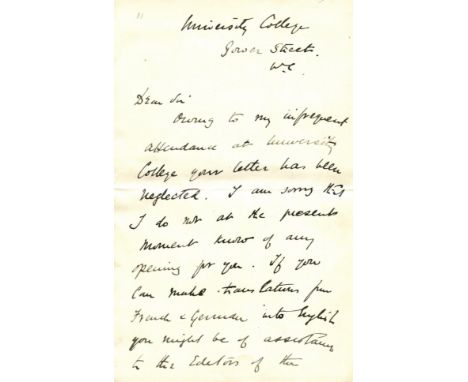 University College
Gower Street.
W.C.
Dear Sir
Owing to my infrequent
attendance at University
College your letter has been
neglected. I am sorry that
I do not at the present
moment know of any
opening for you. If you
can make translations from
French & German into English
you might be of assistance
to the Editors of the